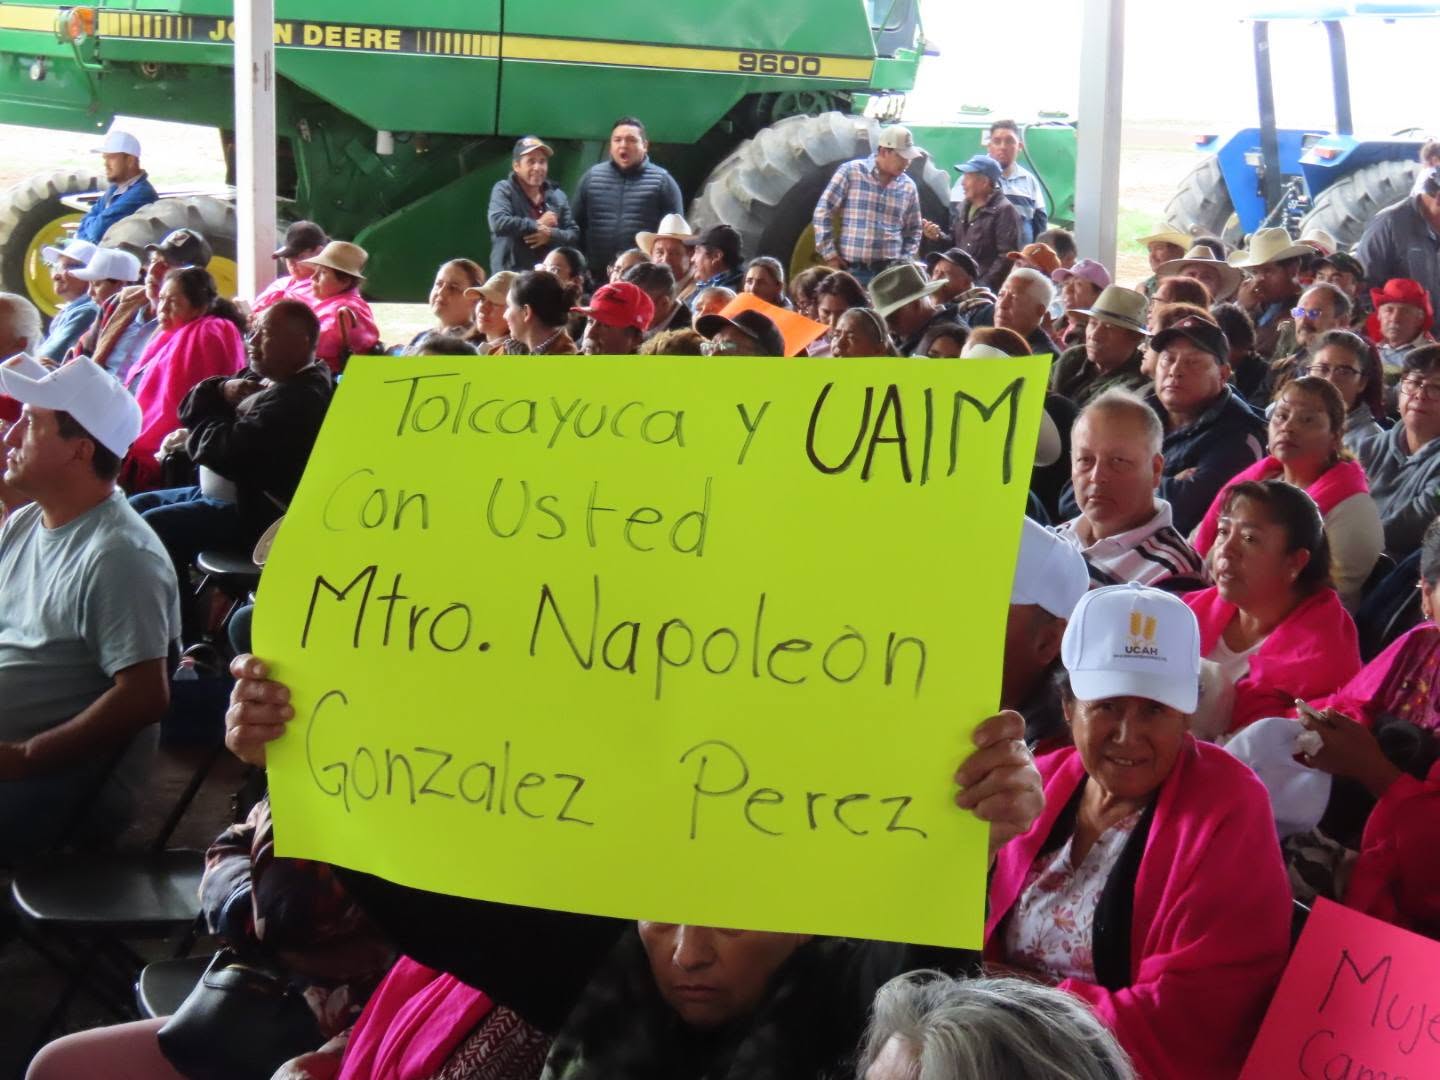 JOHN DEERE
9600
Tolcayuca y UAIM
Con Usted
Mtro. Napoleón
Gonzalez Perez
UCAH
Muje
Cam